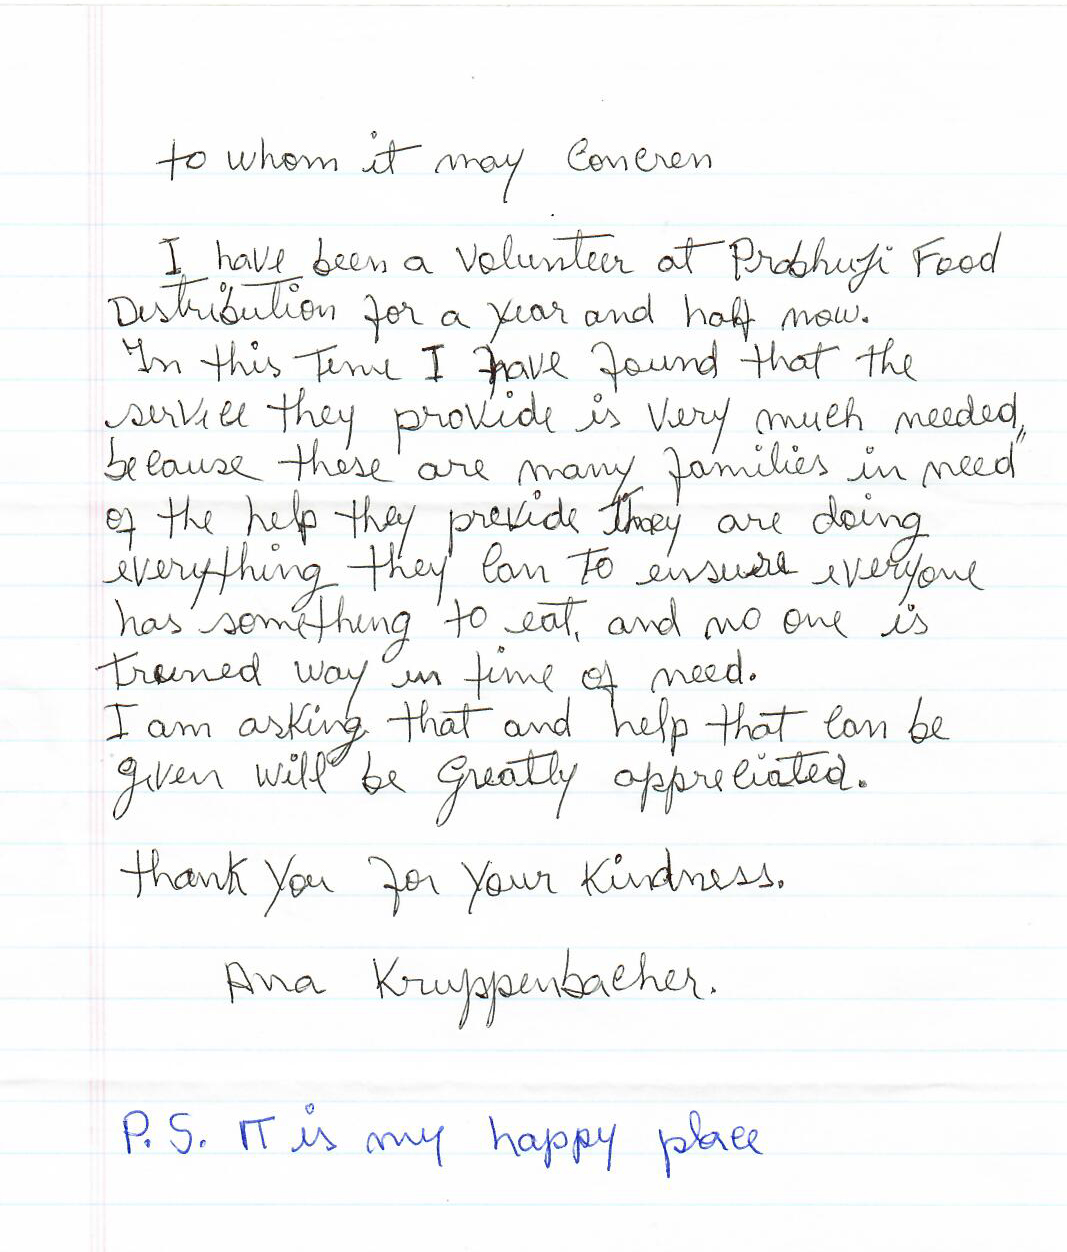 to whom it may Concren
I have been a Volunteer at Prabhuji Food
Distribution for a year and half now.
In this Time I have found that the
service they provide is very much needed,
because these are many families in need
of the help they provide They are doing
everything they can To ensure everyone
has something to eat, and no one is
truned way in time of need.
I am asking that and help that can be
given will be Greatly appreciated.
thank You for Your Kindness.
Ana Kruppenbacher.
P.S. IT is my happy place